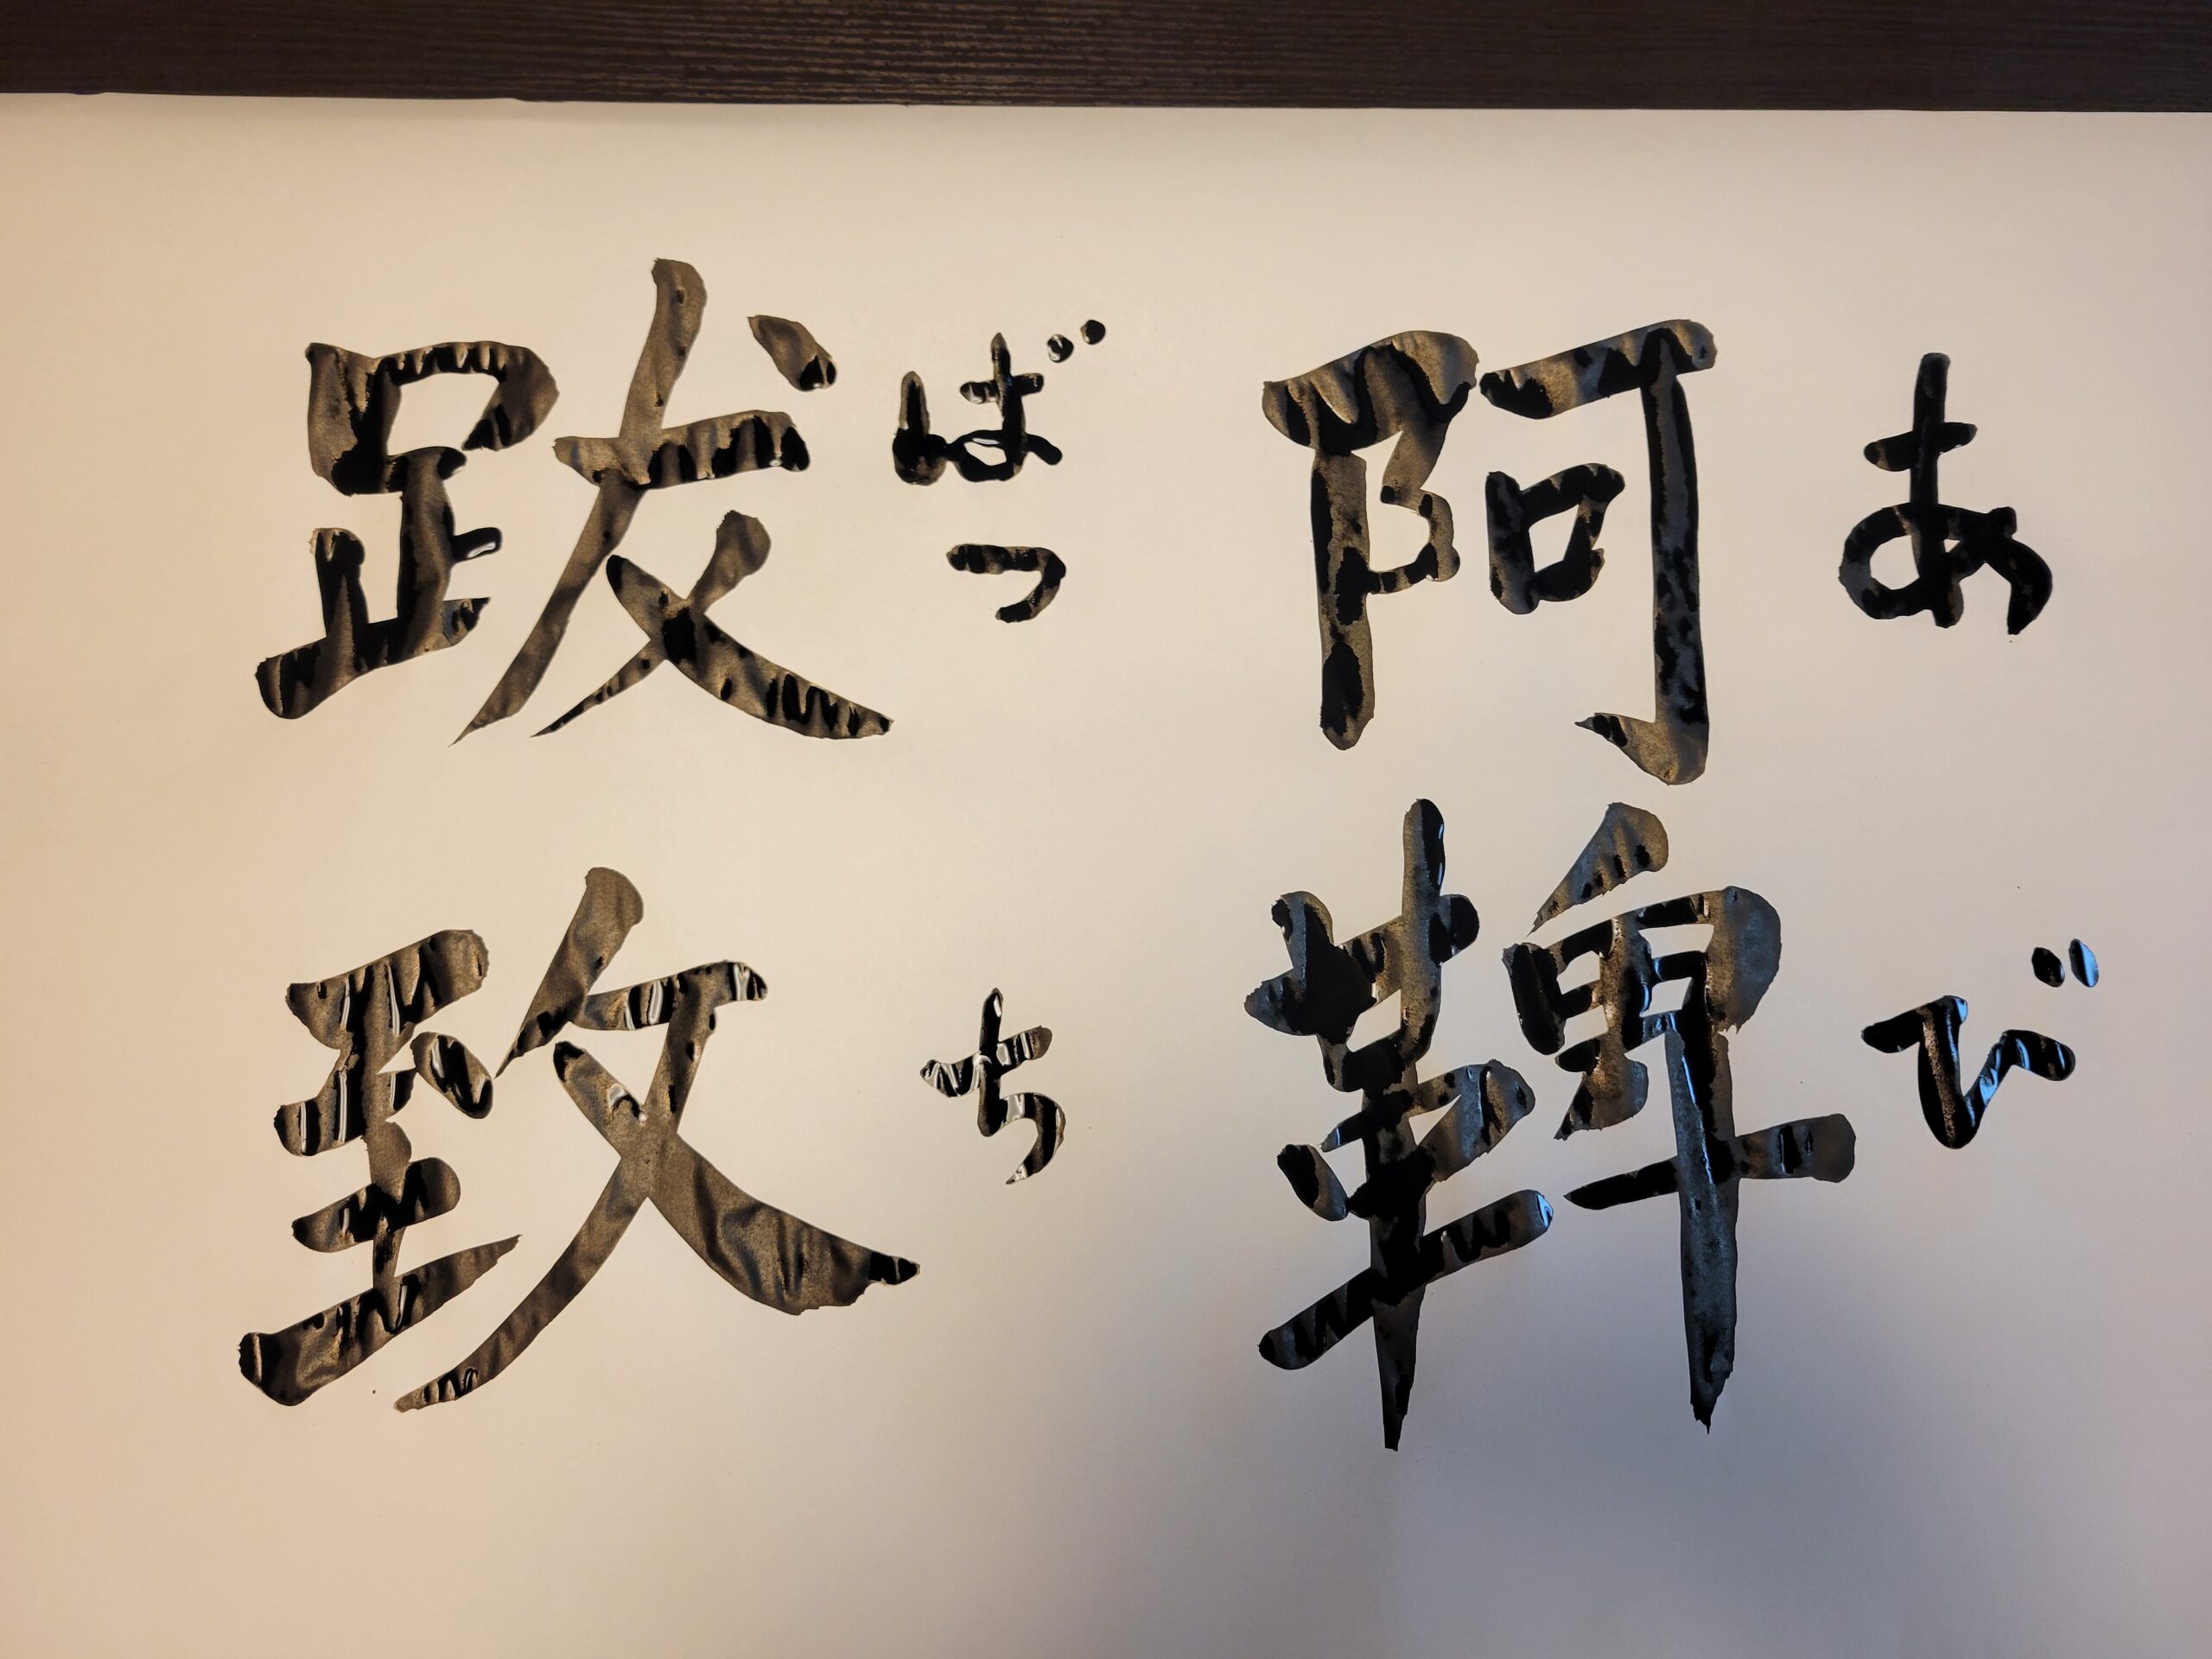 阿鞞
あび
跋致
ばっち